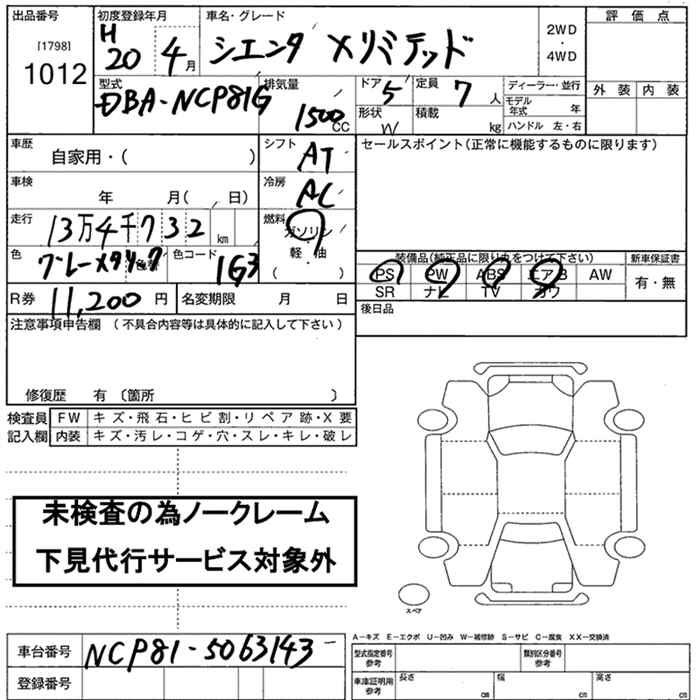 出品番号 初度登録年月 車名・グレード 評価点
[1798]
1012
H 20 4月 シエンタ Xリミテッド 2WD・4WD
外装 内装
型式 排気量 ドア 定員 ディーラー・並行
DBA-NCP81G 1500CC 5 7人 モデル年式 年
形状 積載
W kg ハンドル 左・右
車歴 シフト セールスポイント(正常に機能するものに限ります)
自家用・( ) AT
車検 冷房
年 月( 日) AC
走行 燃料
13万4千732km ガソリン・軽・油
( )
色 色コード
グレーメタリック 1G3
装備品(純正品に限り丸をつけて下さい) 新車保証書
PS PW ABS エアB AW 有・無
SR ナビ TV カワ
R券 11,200円 名変期限 月 日
後日品
注意事項申告欄 (不具合内容等は具体的に記入して下さい)
修復歴 有 〔箇所 〕
検査員 FW キズ・飛石・ヒビ割・リペア跡・X要
記入欄 内装 キズ・汚レ・コゲ・穴・スレ・キレ・破レ
未検査の為ノークレーム
下見代行サービス対象外
スペア
A-キズ E-エクボ U-凹み W-補修跡 S-サビ C-腐食 XX-交換済
車台番号 NCP81-5063143
型式指定番号 参考 類別区分番号 参考
登録番号
車庫証明用 参考 長さ cm 幅 cm 高さ cm